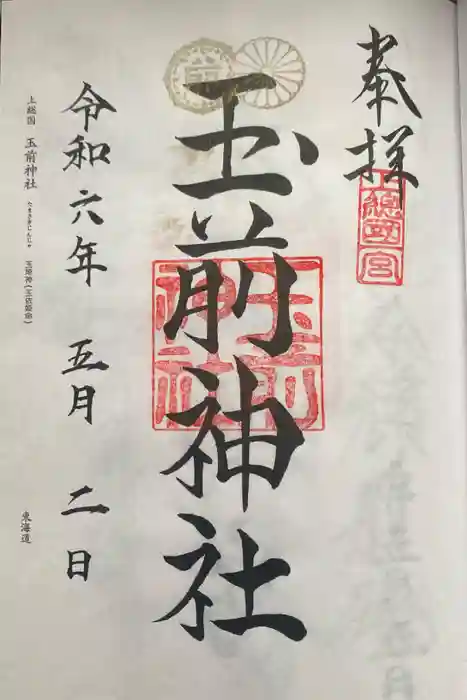 奉拝
上総国一宮
玉前神社
令和六年 五月 二日
上総国 玉前神社 たまさきじんじゃ 玉埼神(玉依姫命) 東海道